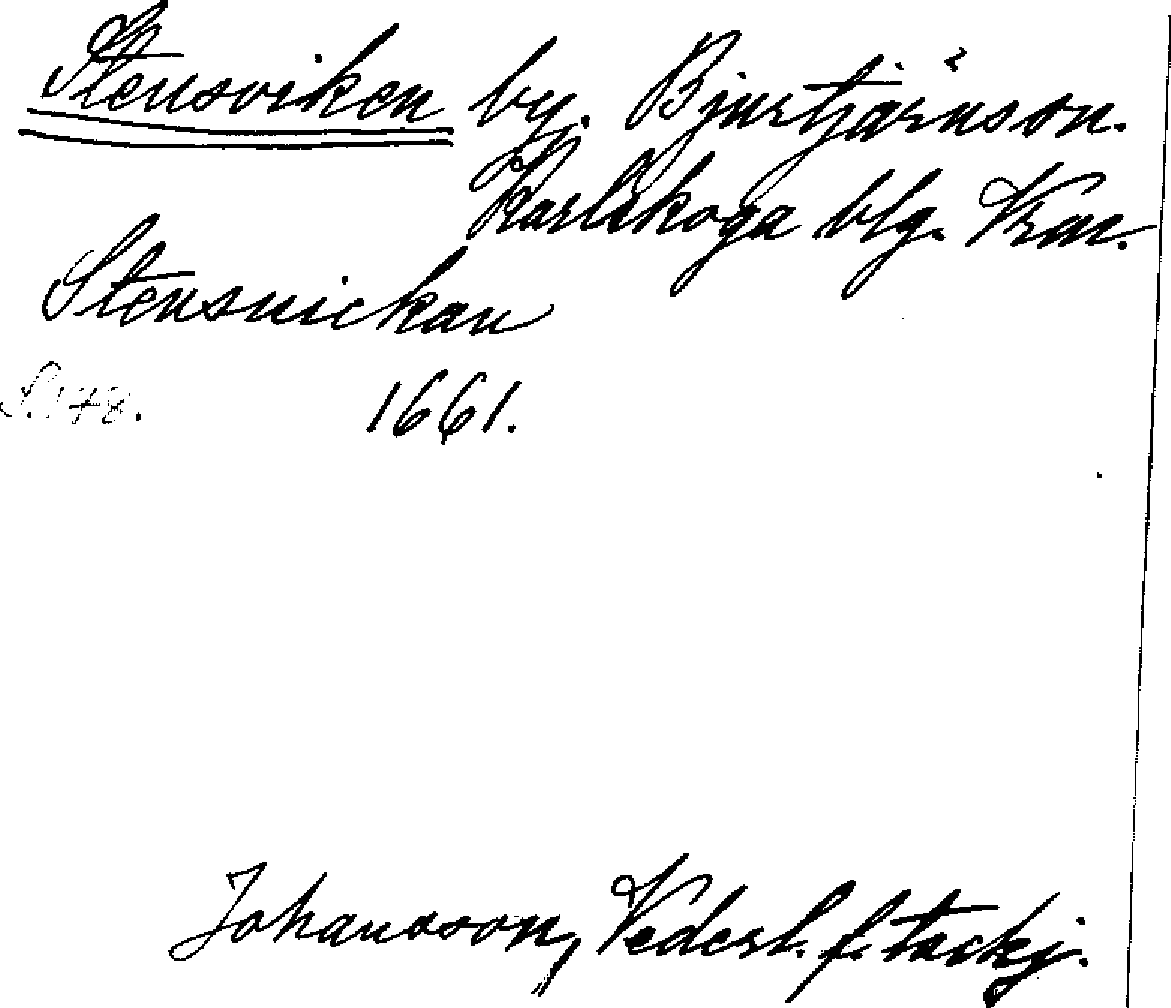 Stensviken by. Bjurtjärnson.
Karlskoga blg. Krav.
Stensnickan
S. 178. 1661.
Johansson, Vedersl. f. tackj.